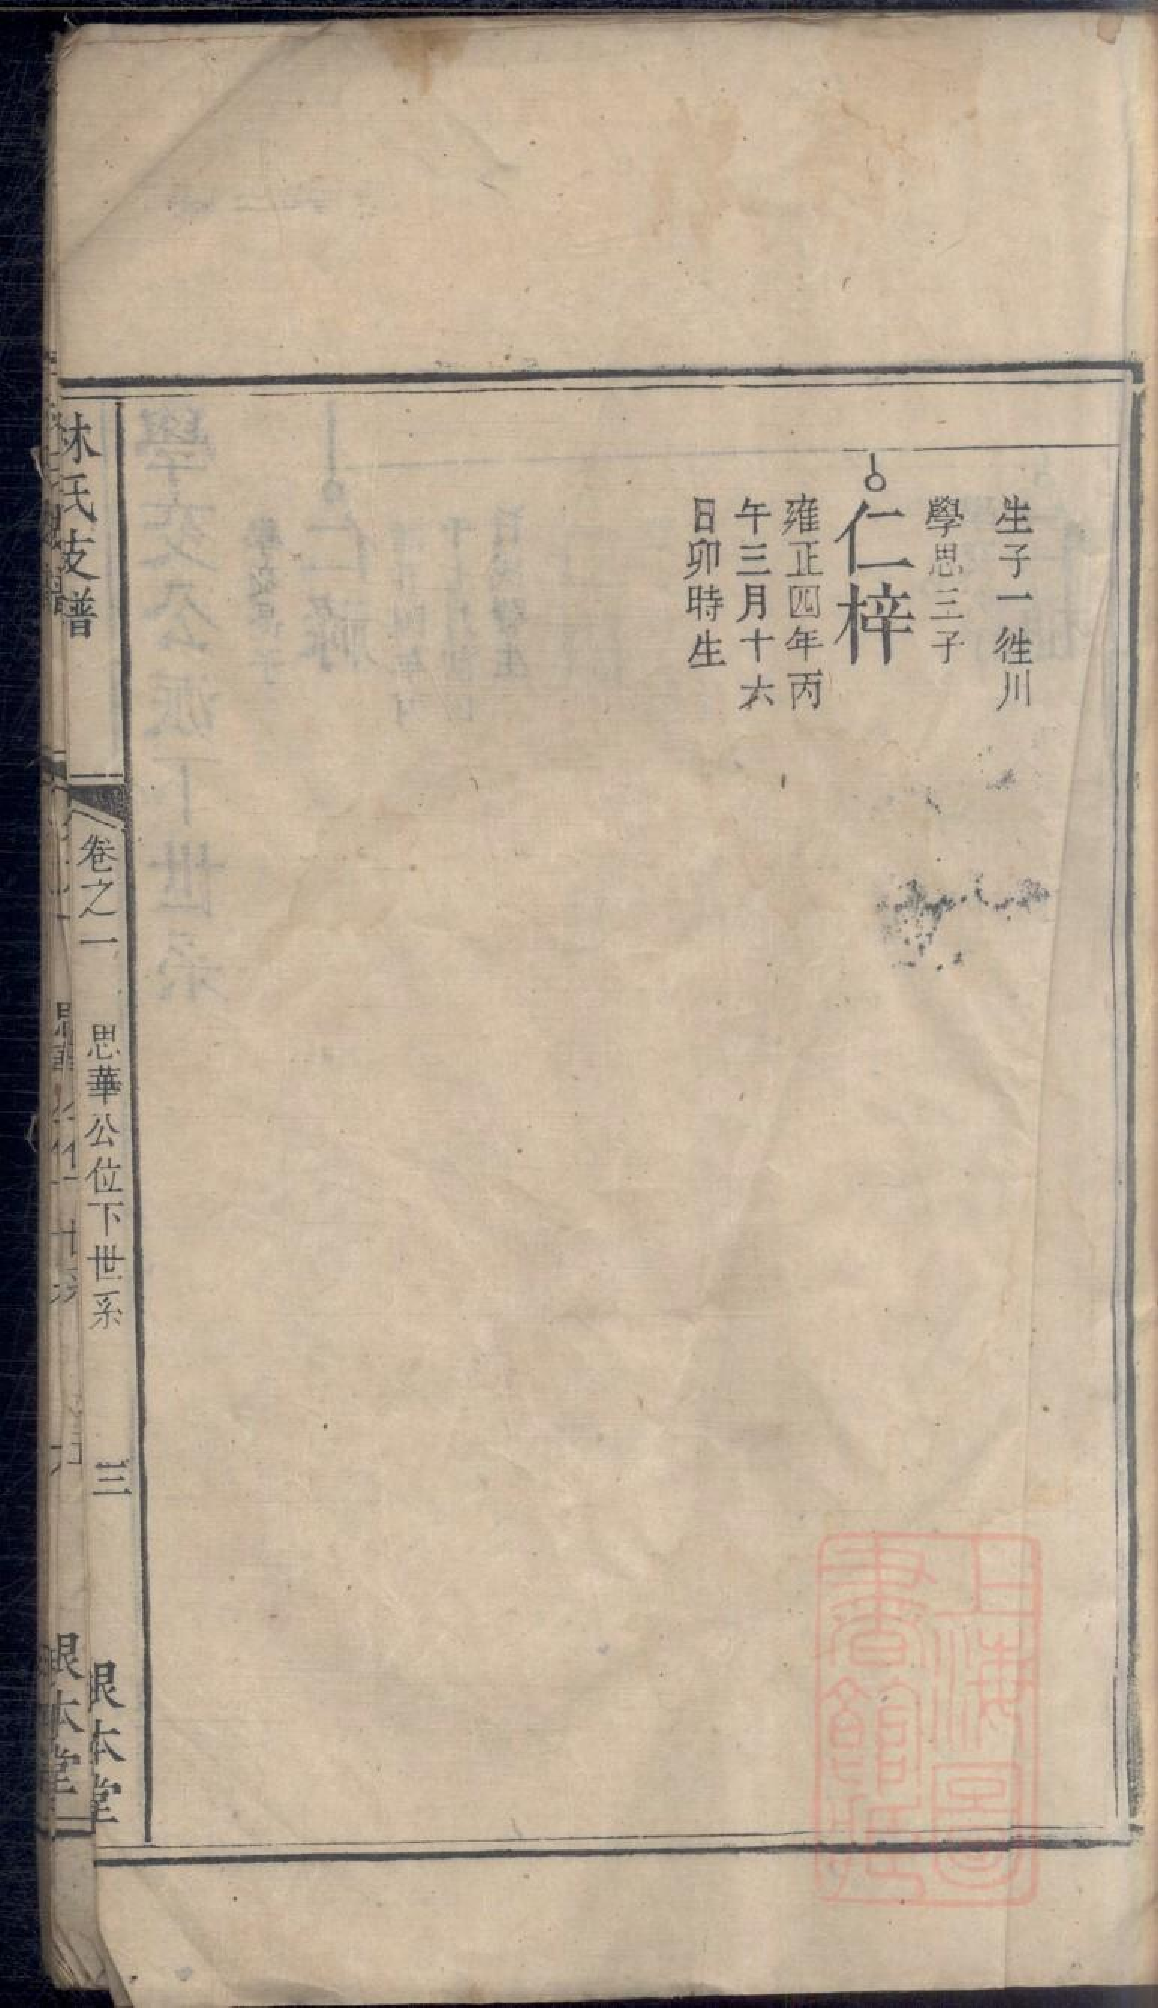 生子一徃川
學思三子
仁梓
雍正四年丙
午三月十六
日卯時生
林氏支譜
卷之一
思華公位下世系
三
根本堂
上海圖
書館藏